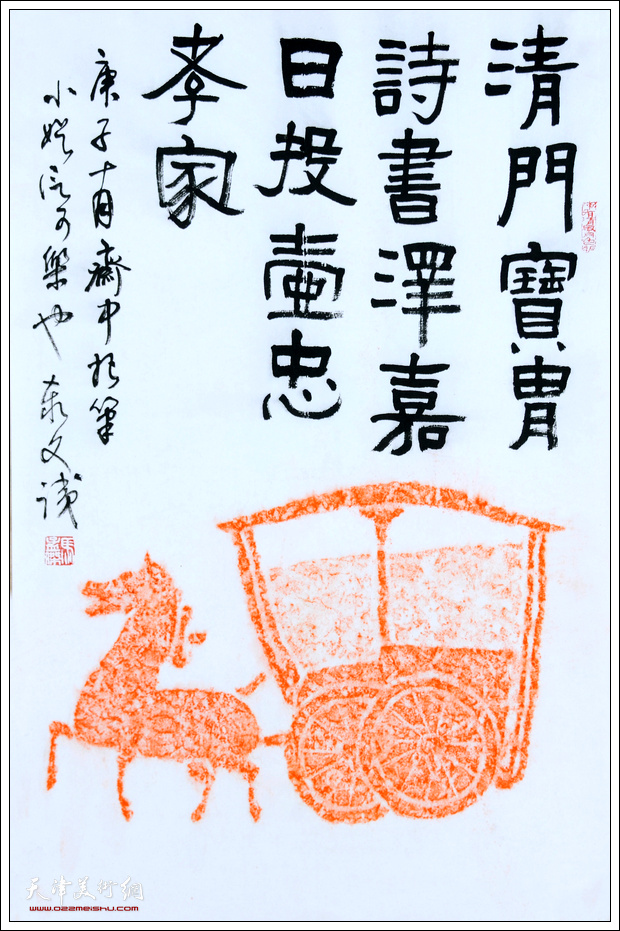 清門寶胄
詩書澤嘉
日投壺忠
孝家
庚子十月齋中於筆
小娱亦可樂也
天津美術網
www.022meishu.com